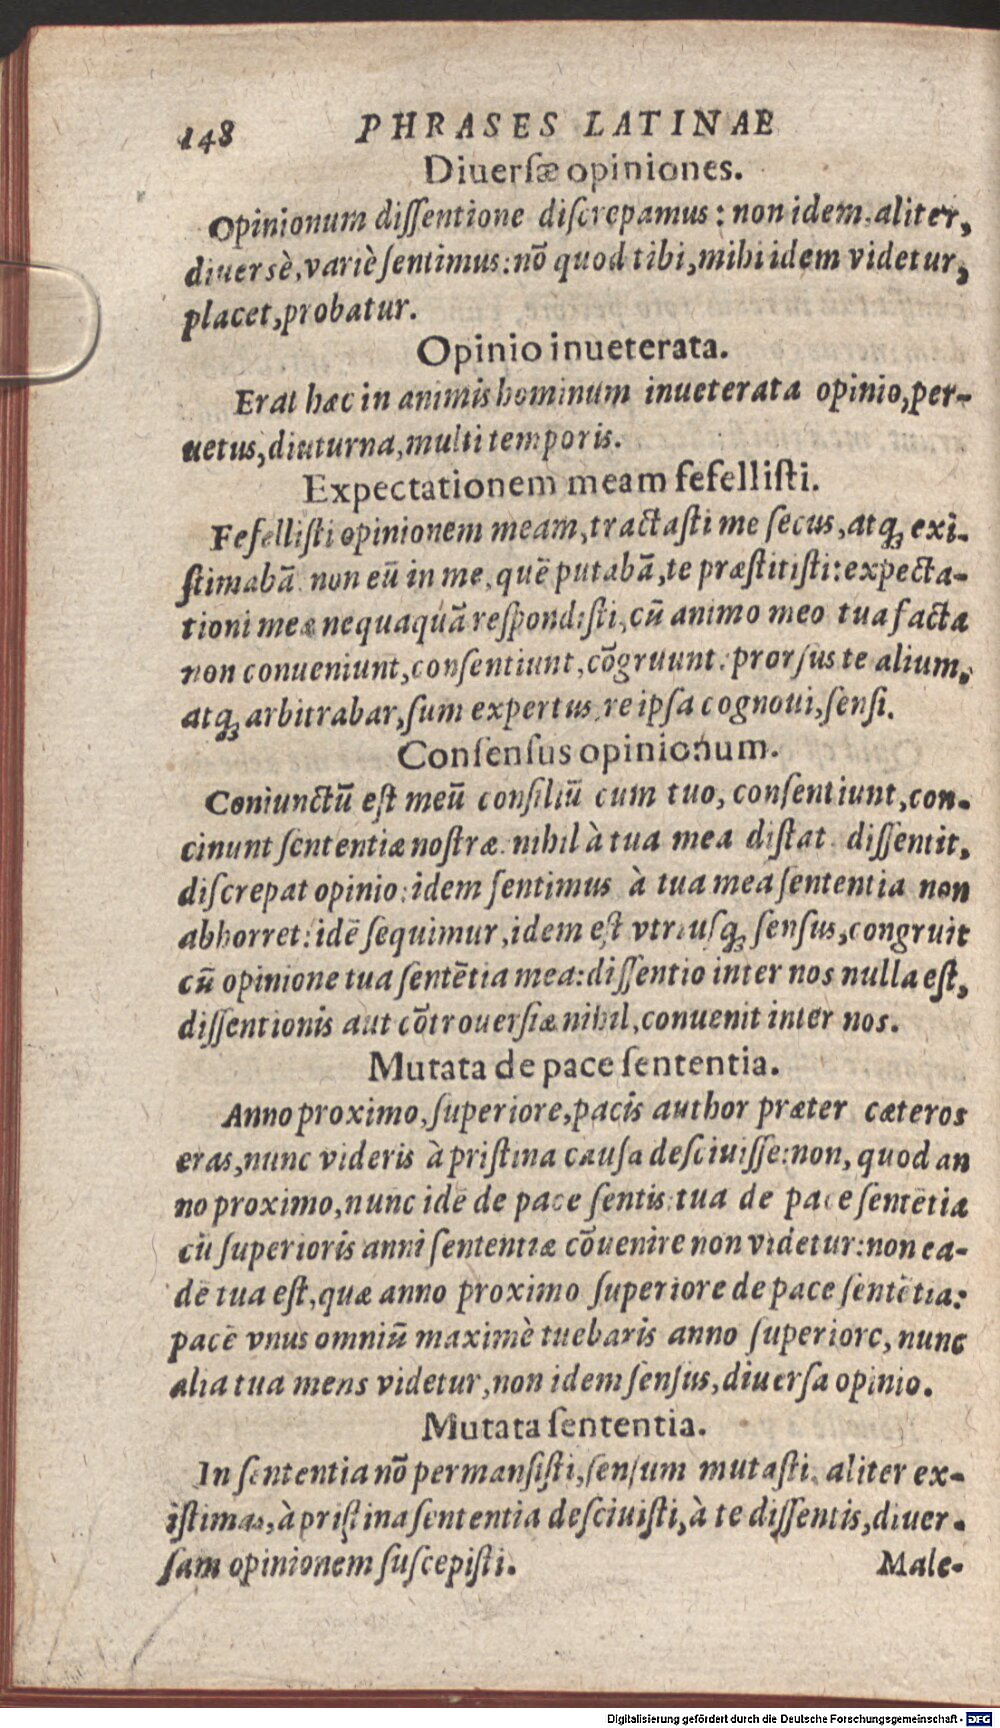 148 PHRASES LATINAE
Diuerſæ opiniones.
Opinionum diſſentione diſcrepamus: non idem, aliter,
diuersè, variè ſentimus: nō quod tibi, mihi idem videtur,
placet, probatur.
Opinio inueterata.
Erat hæc in animis hominum inueterata opinio, per-
uetus, diuturna, multi temporis.
Expectationem meam fefelliſti.
Fefelliſti opinionem meam, tractaſti me ſecus, atq; exi-
ſtimabā non eū in me, quē putabā, te præſtitiſti: expecta-
tioni meæ nequaquā reſpondiſti, cū animo meo tua facta
non conueniunt, conſentiunt, cōgruunt: prorſus te alium,
atq; arbitrabar, ſum expertus, re ipſa cognoui, ſenſi.
Conſenſus opinionum.
Coniunctū eſt meū conſiliū cum tuo, conſentiunt, con-
cinunt ſententiæ noſtræ. nihil à tua mea diſtat diſſentit,
diſcrepat opinio: idem ſentimus à tua mea ſententia non
abhorret: idē ſequimur, idem eſt vtriuſq; ſenſus, congruit
cū opinione tua ſentētia mea: diſſentio inter nos nulla eſt,
diſſentionis aut cōtrouerſiæ nihil, conuenit inter nos.
Mutata de pace ſententia.
Anno proximo, ſuperiore, pacis author præter cæteros
eras, nunc videris à priſtina cauſa deſciuiſſe: non, quod an
no proximo, nunc idē de pace ſentis: tua de pace ſentētia
cū ſuperioris anni ſententiæ cōuenire non videtur: non ea-
dē tua eſt, quæ anno proximo ſuperiore de pace ſentētia:
pacē vnus omniū maximè tuebaris anno ſuperiore, nunc
alia tua mens videtur, non idem ſenſus, diuerſa opinio.
Mutata ſententia.
In ſententia nō permanſiſti, ſenſum mutaſti, aliter ex-
iſtimas, à priſtina ſententia deſciuiſti, à te diſſentis, diuer-
ſam opinionem ſuſcepiſti. Male-
Digitalisierung gefördert durch die Deutsche Forschungsgemeinschaft - DFG